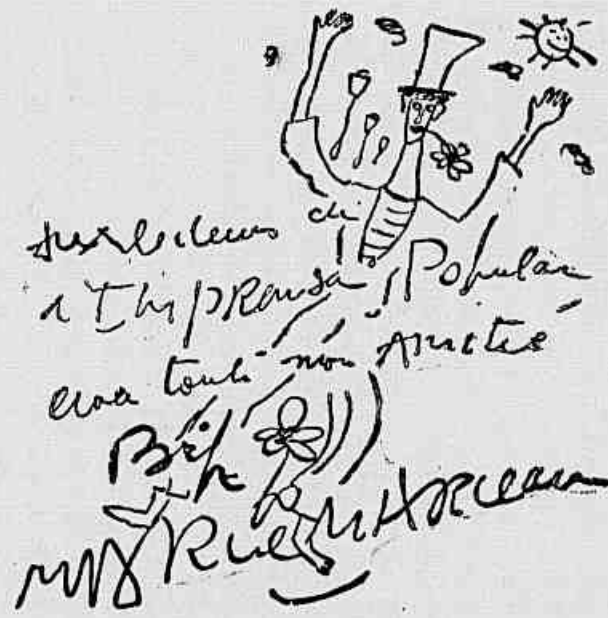 Aux lecteurs de
l'Imprensa Popular
avec toute mon Amitié
Bip
MARcel MARceau